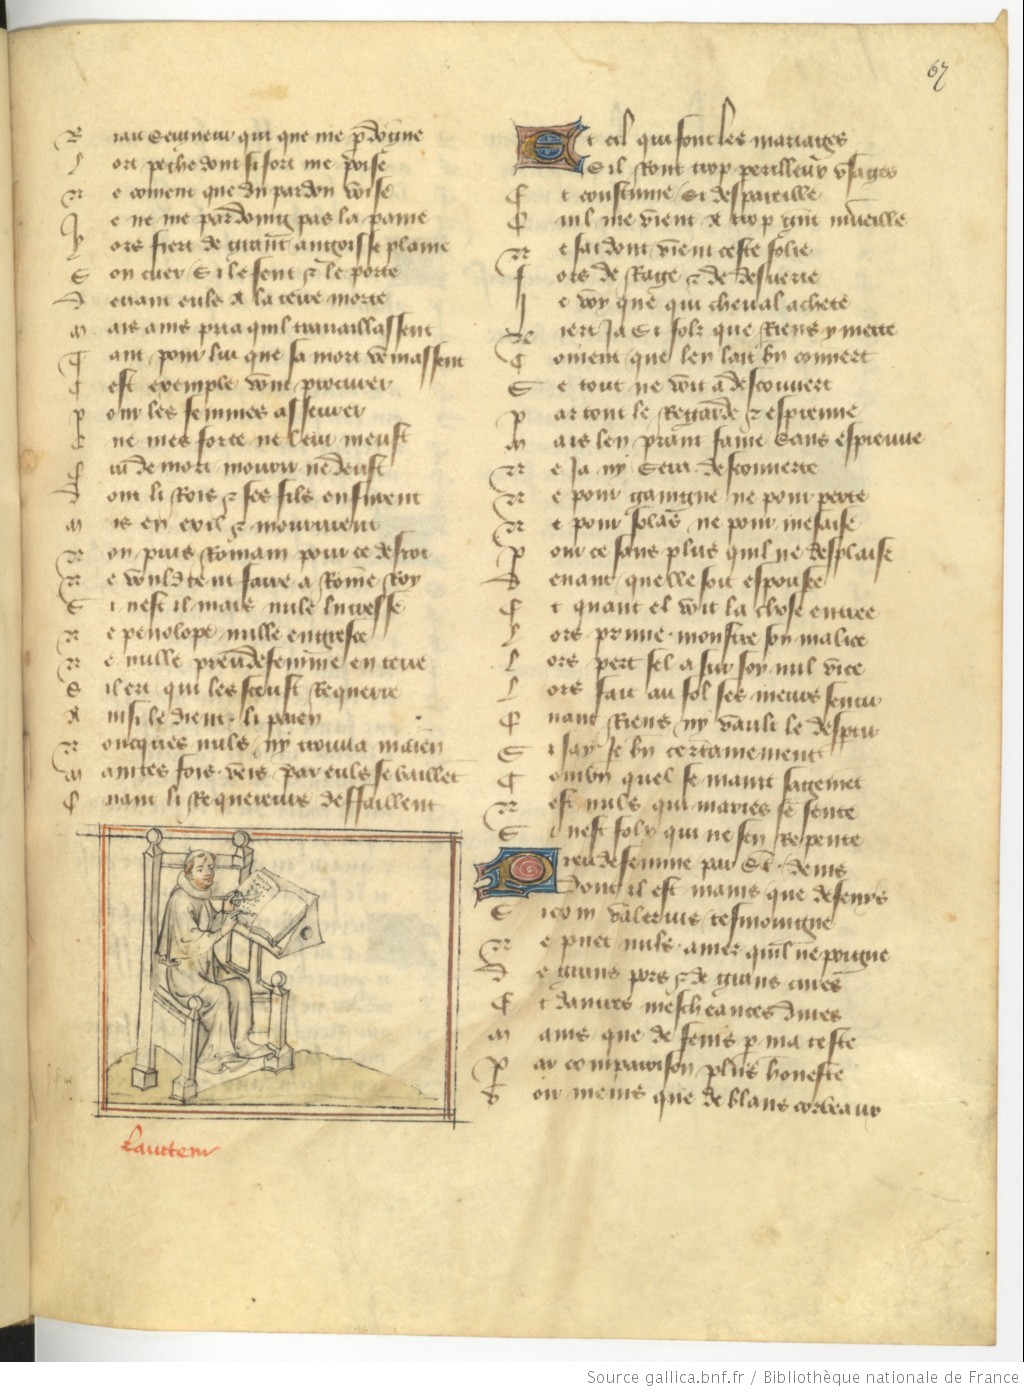 67
B iau seigneur qui que me pdoigne
L ort peche dont si fort me poise
N e coment que du pardon voise
J e ne me pardoing pas la paine
H ors fiert de grant angoisse plaine
S on cuer si le fent z le porte
D evant euls a la terre morte
M ais ains pria quil travaillassent
T ant pour lui que sa mort vengassent
C est exemple vout procurer
P our les femmes asseurer
Q ne mes force ne leur meust
Q ui de mort mourir ne deust
D ont li Rois z ses fils ensivent
M is en exil z moururent
N on puis Romain pour ce desroi
N e vouldrent faire a Rome Roy
S i nest il mais nule lucresse
N e penolope nulle en grece
N e nulle preudefemme en terre
S il ert qui les sceust Requerre
A insi le dient li paien
N oncques nuls ny trouva maien
M aintes fois vers par euls se baillent
Q uant li Requereurs deffaillent
Lauctem
E t cil qui font les mariages
Si Ront trop perilleux usages
E t coustume si despareille
Q uil me vient a trop grant mveille
N e sai dont vient ceste folie
F ors de Rage z de desverie
J e voy que qui cheval achete
N iert ja si fols que Riens y mette
C oment que len lait bn couvert
S e tout ne voit a descouvert
P ar tout le Regarde z esprieuve
M ais len prant fame sans esprieuve
N e ja ny sera descouverte
N e pour gaaigne ne pour perte
N e pour solas ne pour mesaise
P our ce sans plus quil ne desplaise
D evant quelle soit espousee
E t quant el voit la chose outree
L ors prime monstre son malice
L ors pert sel a sur soy nul vice
L ors fait au fol ses meurs sentir
Q uant Riens ny vault le Repentir
S i say je bn certainement
C ombn quel se maint sagemet
N est nuls qui maries se sente
S i nest fols qui ne sen Repente
Preudefemme par St denis
Dont il est mains que de fenys
S icom valerius tesmoingne
N e puet nuls amer quil ne poigne
D e grans pors z de grans cures
E t dautres mescheances dures
M ains que de fenis p ma teste
P ar comparison plus honeste
V oir meins que de blans corbeaux
Source gallica.bnf.fr / Bibliothèque nationale de France